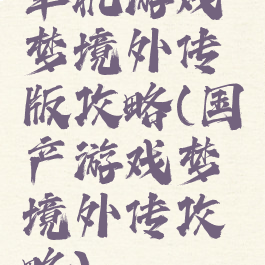 单机游戏
梦境外传
版攻略(国
产游戏梦
境外传攻
略)